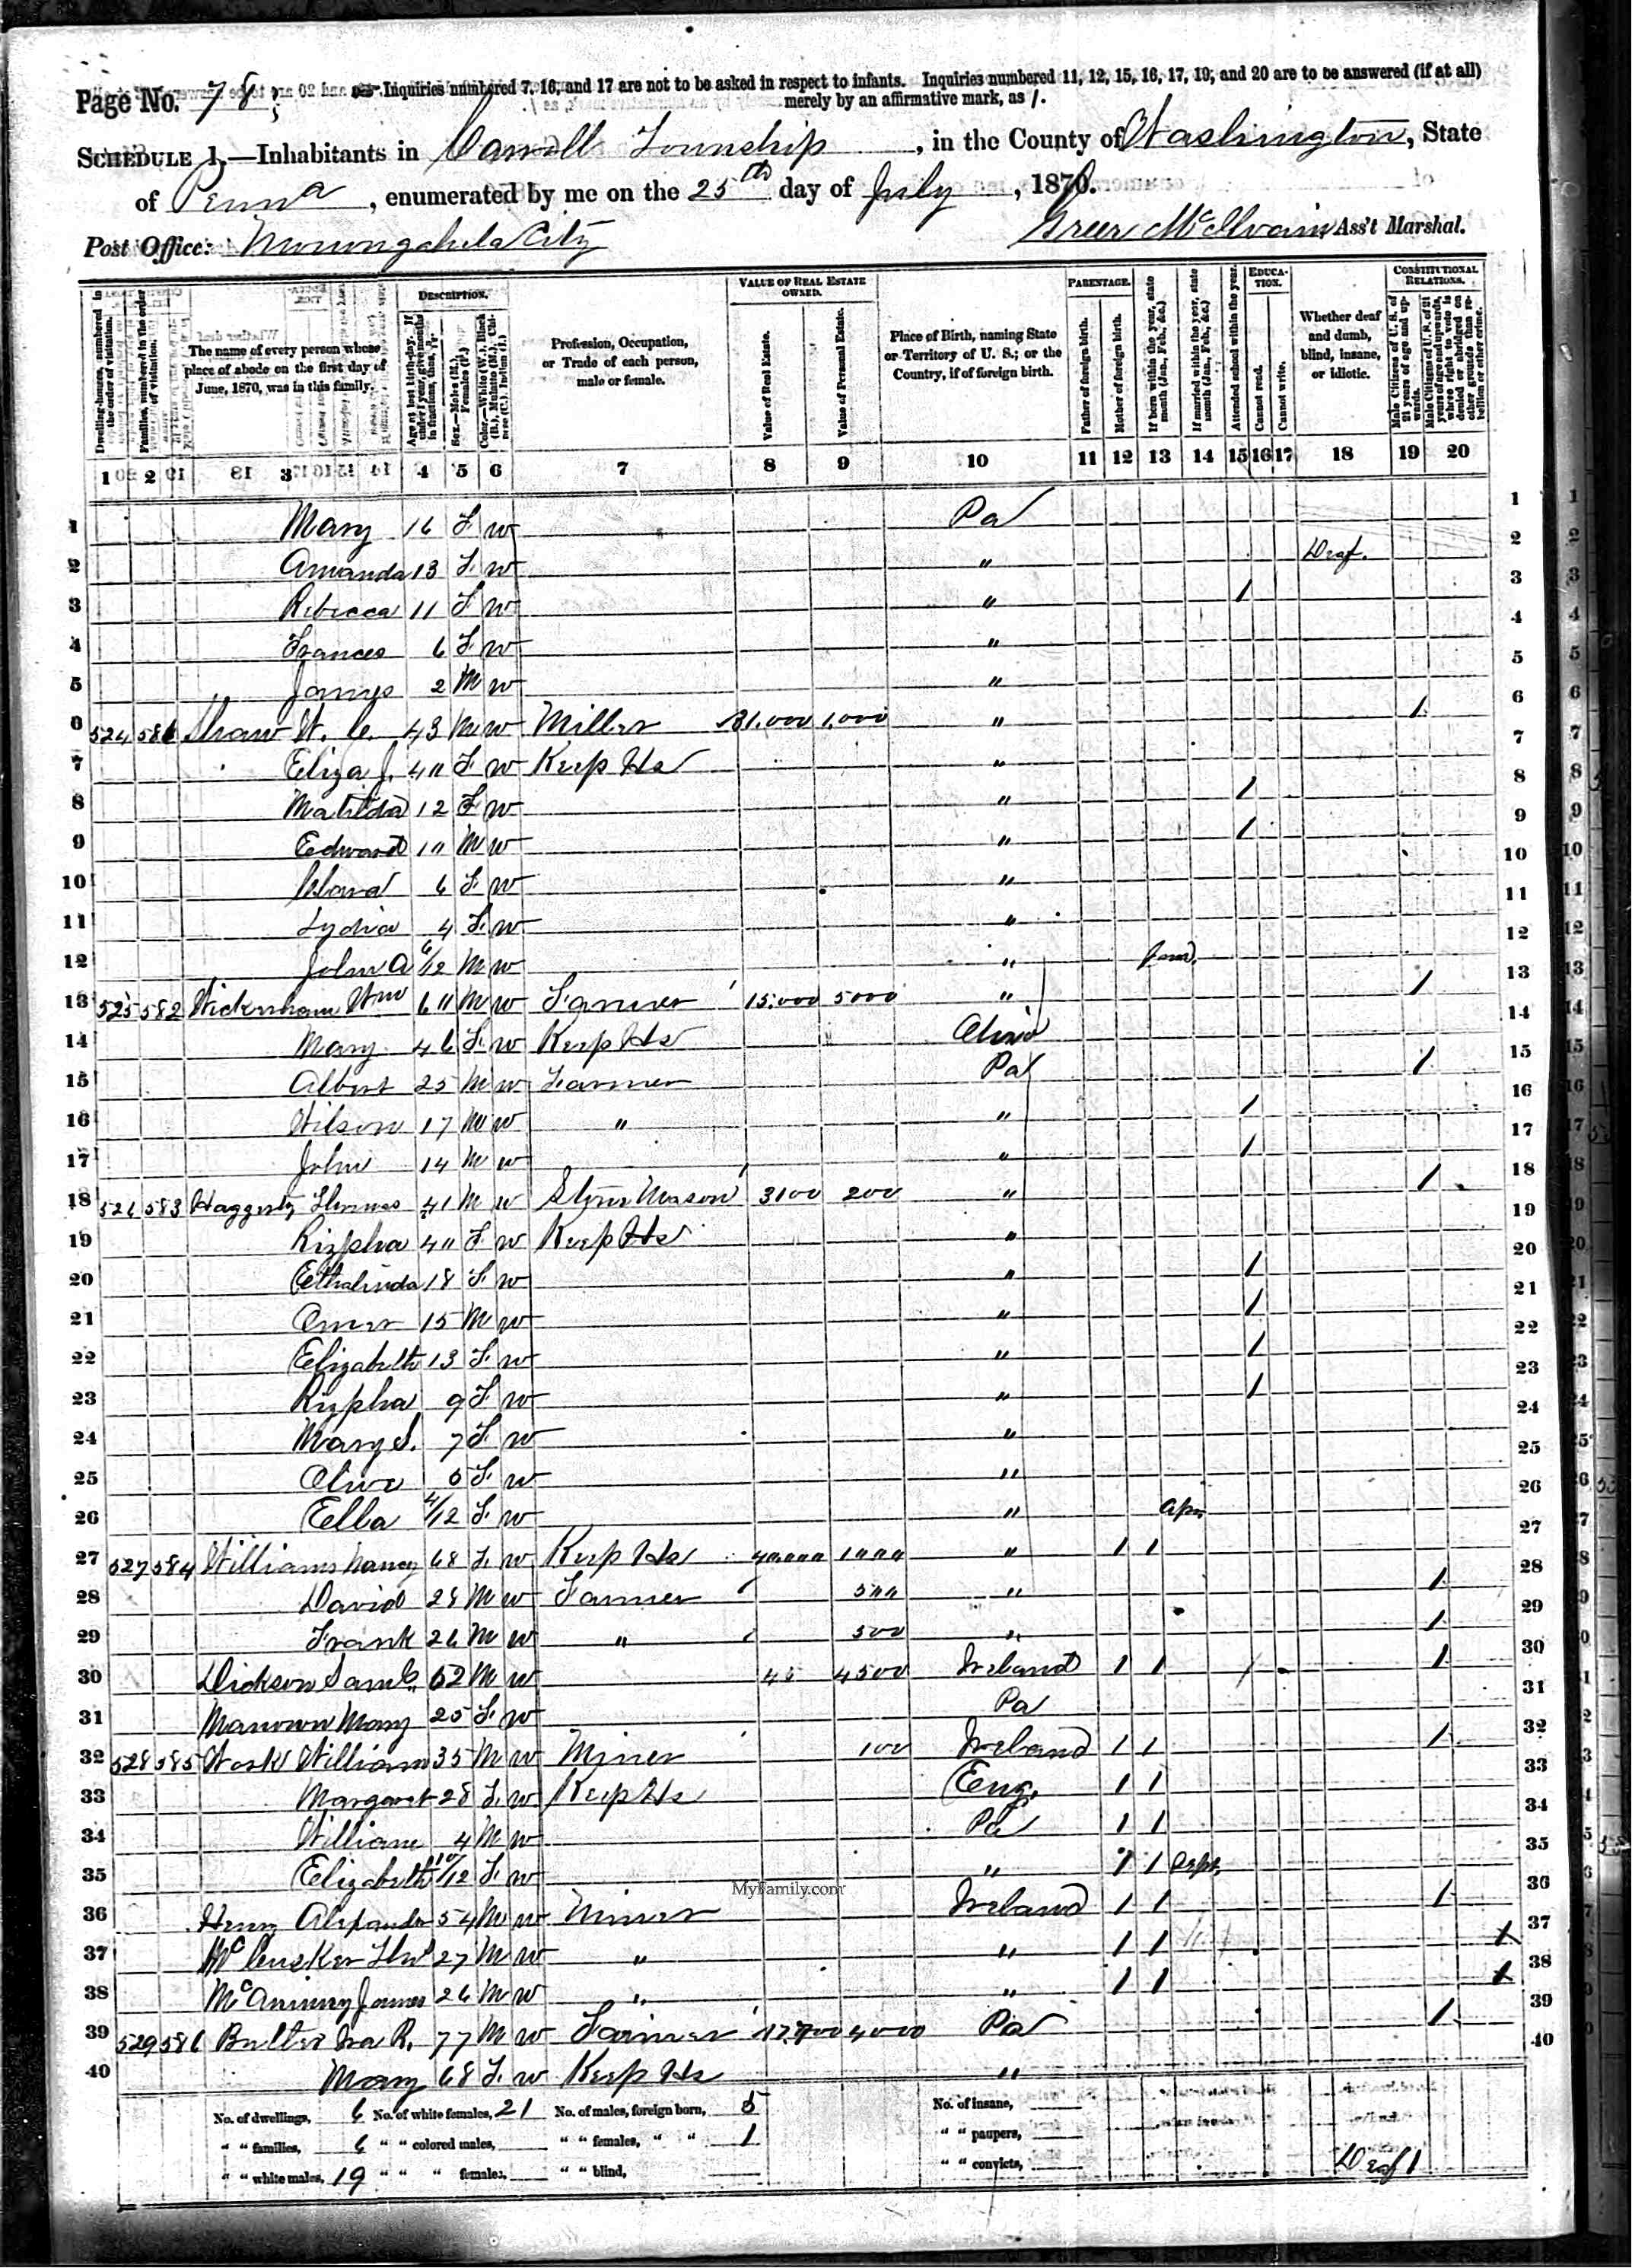 Page No. 78
Inquiries numbered 7, 16, and 17 are not to be asked in respect to infants. Inquiries numbered 11, 12, 15, 16, 17, 19, and 20 are to be answered (if at all)
merely by an affirmative mark, as /.
SCHEDULE 1.—Inhabitants in Carroll Township, in the County of Washington, State
of Penna, enumerated by me on the 25th day of July, 1870.
Post Office: Monongahela City Greer McIlvain Ass't Marshal.
Dwelling-houses, numbered in the order of visitation.
Families, numbered in the order of visitation.
The name of every person whose place of abode on the first day of June, 1870, was in this family.
DESCRIPTION.
Age at last birth-day. If under 1 year, give months in fractions, thus, 3/12.
Sex.—Males (M.), Females (F.)
Color.—White (W.), Black (B.), Mulatto (M.), Chinese (C.), Indian (I.)
Profession, Occupation, or Trade of each person, male or female.
VALUE OF REAL ESTATE OWNED.
Value of Real Estate.
Value of Personal Estate.
Place of Birth, naming State or Territory of U. S.; or the Country, if of foreign birth.
PARENTAGE.
Father of foreign birth.
Mother of foreign birth.
If born within the year, state month (Jan. Feb., &c.)
If married within the year, state month (Jan. Feb., &c.)
Attended school within the year.
EDUCATION.
Cannot read.
Cannot write.
Whether deaf and dumb, blind, insane, or idiotic.
CONSTITUTIONAL RELATIONS.
Male Citizens of U. S. of 21 years of age and upwards.
Male Citizens of U. S. of 21 years of age and upwards, whose right to vote is denied or abridged on other grounds than rebellion or other crime.
1 2 3 4 5 6 7 8 9 10 11 12 13 14 15 16 17 18 19 20
1 Mary 16 F W Pa 1
2 Amanda 13 F W " Deaf. 2
3 Rebecca 11 F W " / 3
4 Frances 6 F W " 4
5 James 2 M W " 5
6 524 581 Shaw W. C. 43 M W Miller 31,000 1,000 " / 6
7 Eliza J. 40 F W Keep Hs " 7
8 Matilda 12 F W " / 8
9 Edward 10 M W " / 9
10 Clara 6 F W " 10
11 Lydia 4 F W " 11
12 John A 6/12 M W " Jan. 12
13 525 582 Wickersham Wm 60 M W Farmer 15,000 5000 " / 13
14 Mary 46 F W Keep Hs Ohio 14
15 Albert 25 M W Farmer Pa / 15
16 Wilson 17 M W " " / 16
17 John 14 M W " / 17
18 526 583 Haggerty Thomas 41 M W Stone Mason 3100 200 " / 18
19 Rizpha 40 F W Keep Hs " 19
20 Ethalinda 18 F W " / 20
21 15 M W " / 21
22 Elizabeth 13 F W " / 22
23 Rizpha 9 F W " / 23
24 Mary S. 7 F W " 24
25 Olive 5 F W " 25
26 Ella 4/12 F W " Apr. 26
27 527 584 Williams Nancy 68 F W Keep Hs 40,000 1000 " / / 27
28 David 28 M W Farmer 500 " / 28
29 Frank 26 M W " 500 " / 29
30 Dickson Saml. 62 M W 4500 Ireland / / / / 30
31 Manown Mary 25 F W Pa 31
32 528 585 Work William 35 M W Miner 100 Ireland / / / 32
33 Margaret 28 F W Keep Hs Eng. / / 33
34 William 4 M W Pa / / 34
35 Elizabeth 10/12 F W " / / Sept. 35
36 Henry Alexander 54 M W Miner Ireland / / / 36
37 McCusker Thos 27 M W " " / / / 37
38 McAninny James 26 M W " " / / / 38
39 529 586 Butler Ira R. 77 M W Farmer 17,700 4000 Pa / 39
40 Mary 68 F W Keep Hs " 40
No. of dwellings, 6 No. of white females, 21 No. of males, foreign born, 5 No. of insane,
" " families, 6 " " colored males, " " females, " " 1 " " paupers,
" " white males, 19 " " " females, " " blind, " " convicts, Deaf 1
MyFamily.com